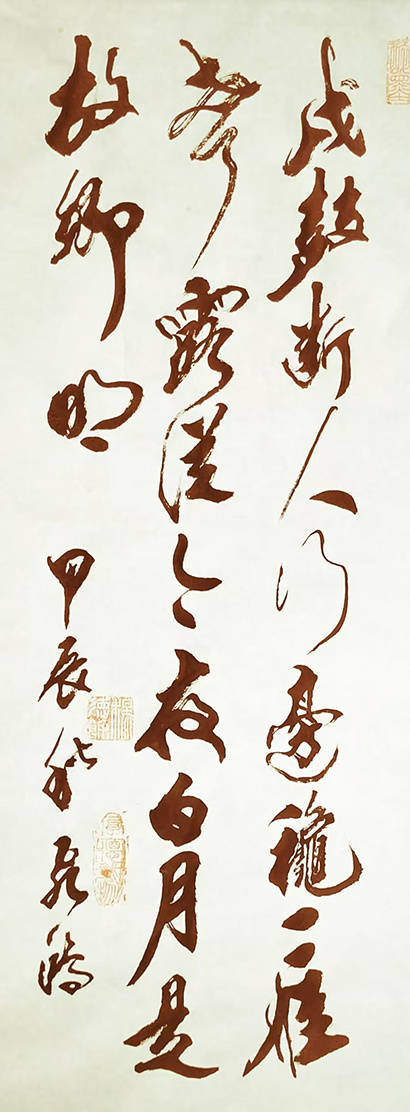 戍鼓断人行邊穐一雁
聲露從今夜白月是
故鄉明
甲辰秋